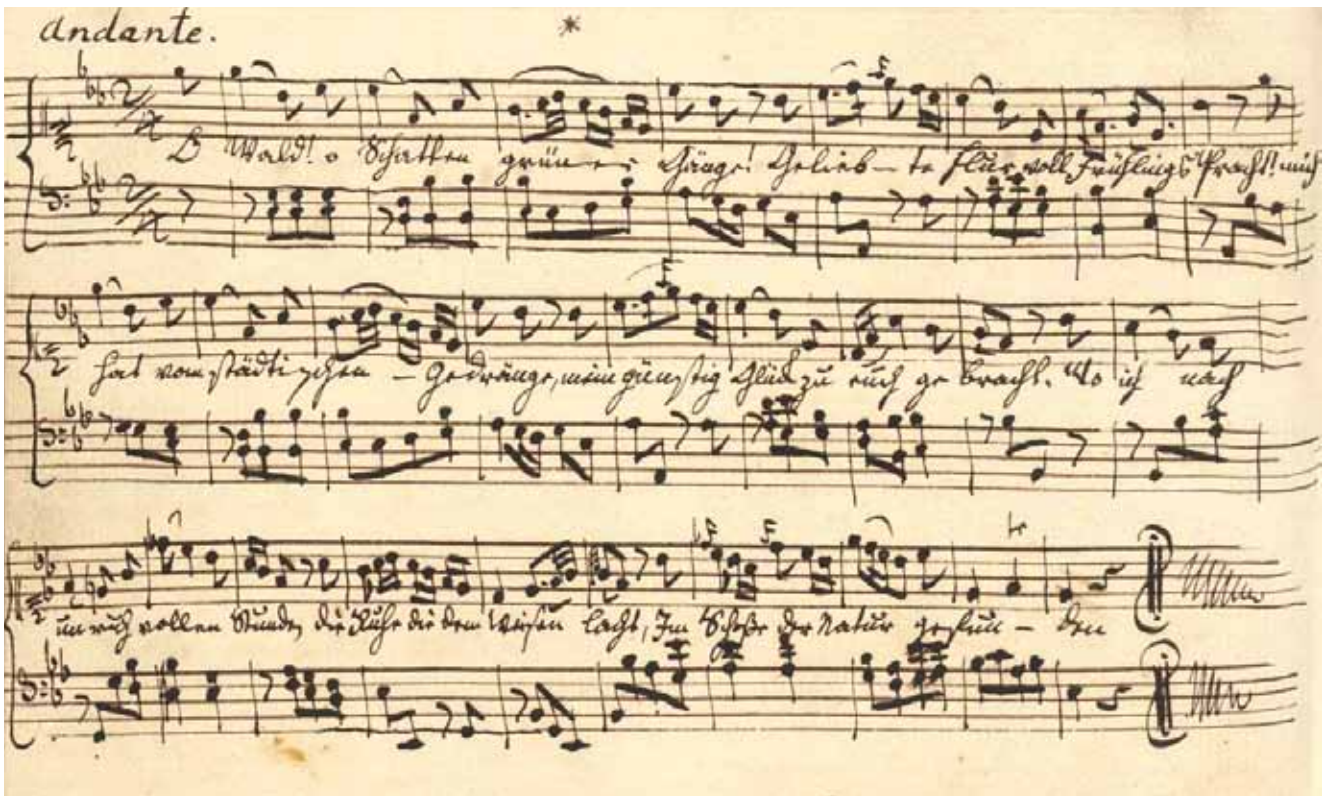 Andante.
O Wald! o Schatten grüner Gänge! Gelieb- te Flur voll Frühlings Pracht! mich
hat vom städtischen - Gedränge, mein günstig Glück zu euch gebracht. Wo ich nach
unruhvollen Stunden die Ruhe die dem Weisen lacht, Im Schoße der Natur gefun- den